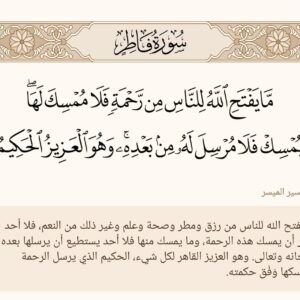 سُورَةُ فَاطِرٍ
مَّا يَفْتَحِ ٱللَّهُ لِلنَّاسِ مِن رَّحْمَةٍ فَلَا مُمْسِكَ لَهَاۖ
يُمْسِكْ فَلَا مُرْسِلَ لَهُۥ مِنۢ بَعْدِهِۦۚ وَهُوَ ٱلْعَزِيزُ ٱلْحَكِيمُ
الميسر
فتح الله للناس من رزق ومطر وصحة وعلم وغير ذلك من النعم، فلا أحد
أن يمسك هذه الرحمة، وما يمسك منها فلا أحد يستطيع أن يرسلها بعده
وتعالى. وهو العزيز القاهر لكل شيء، الحكيم الذي يرسل الرحمة
وَفْق حكمته.